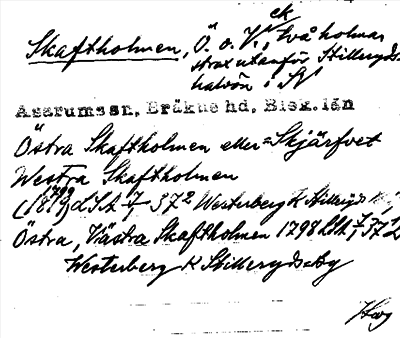 ek
Skaftholmen, Ö. o. V., två holmar
strax utanför Stilleryds-
halvön i SV
Asarumssn, Bräkne hd, Blek. län
Östra Skaftholmen eller = Skjärfvet
Westra Skaftholmen
(1879) LSA 7 372 Westerberg K Stilleryds
Östra, Västra Skaftholmen 1798 LSA 7, 372
Westerberg K Stilleryds Ag